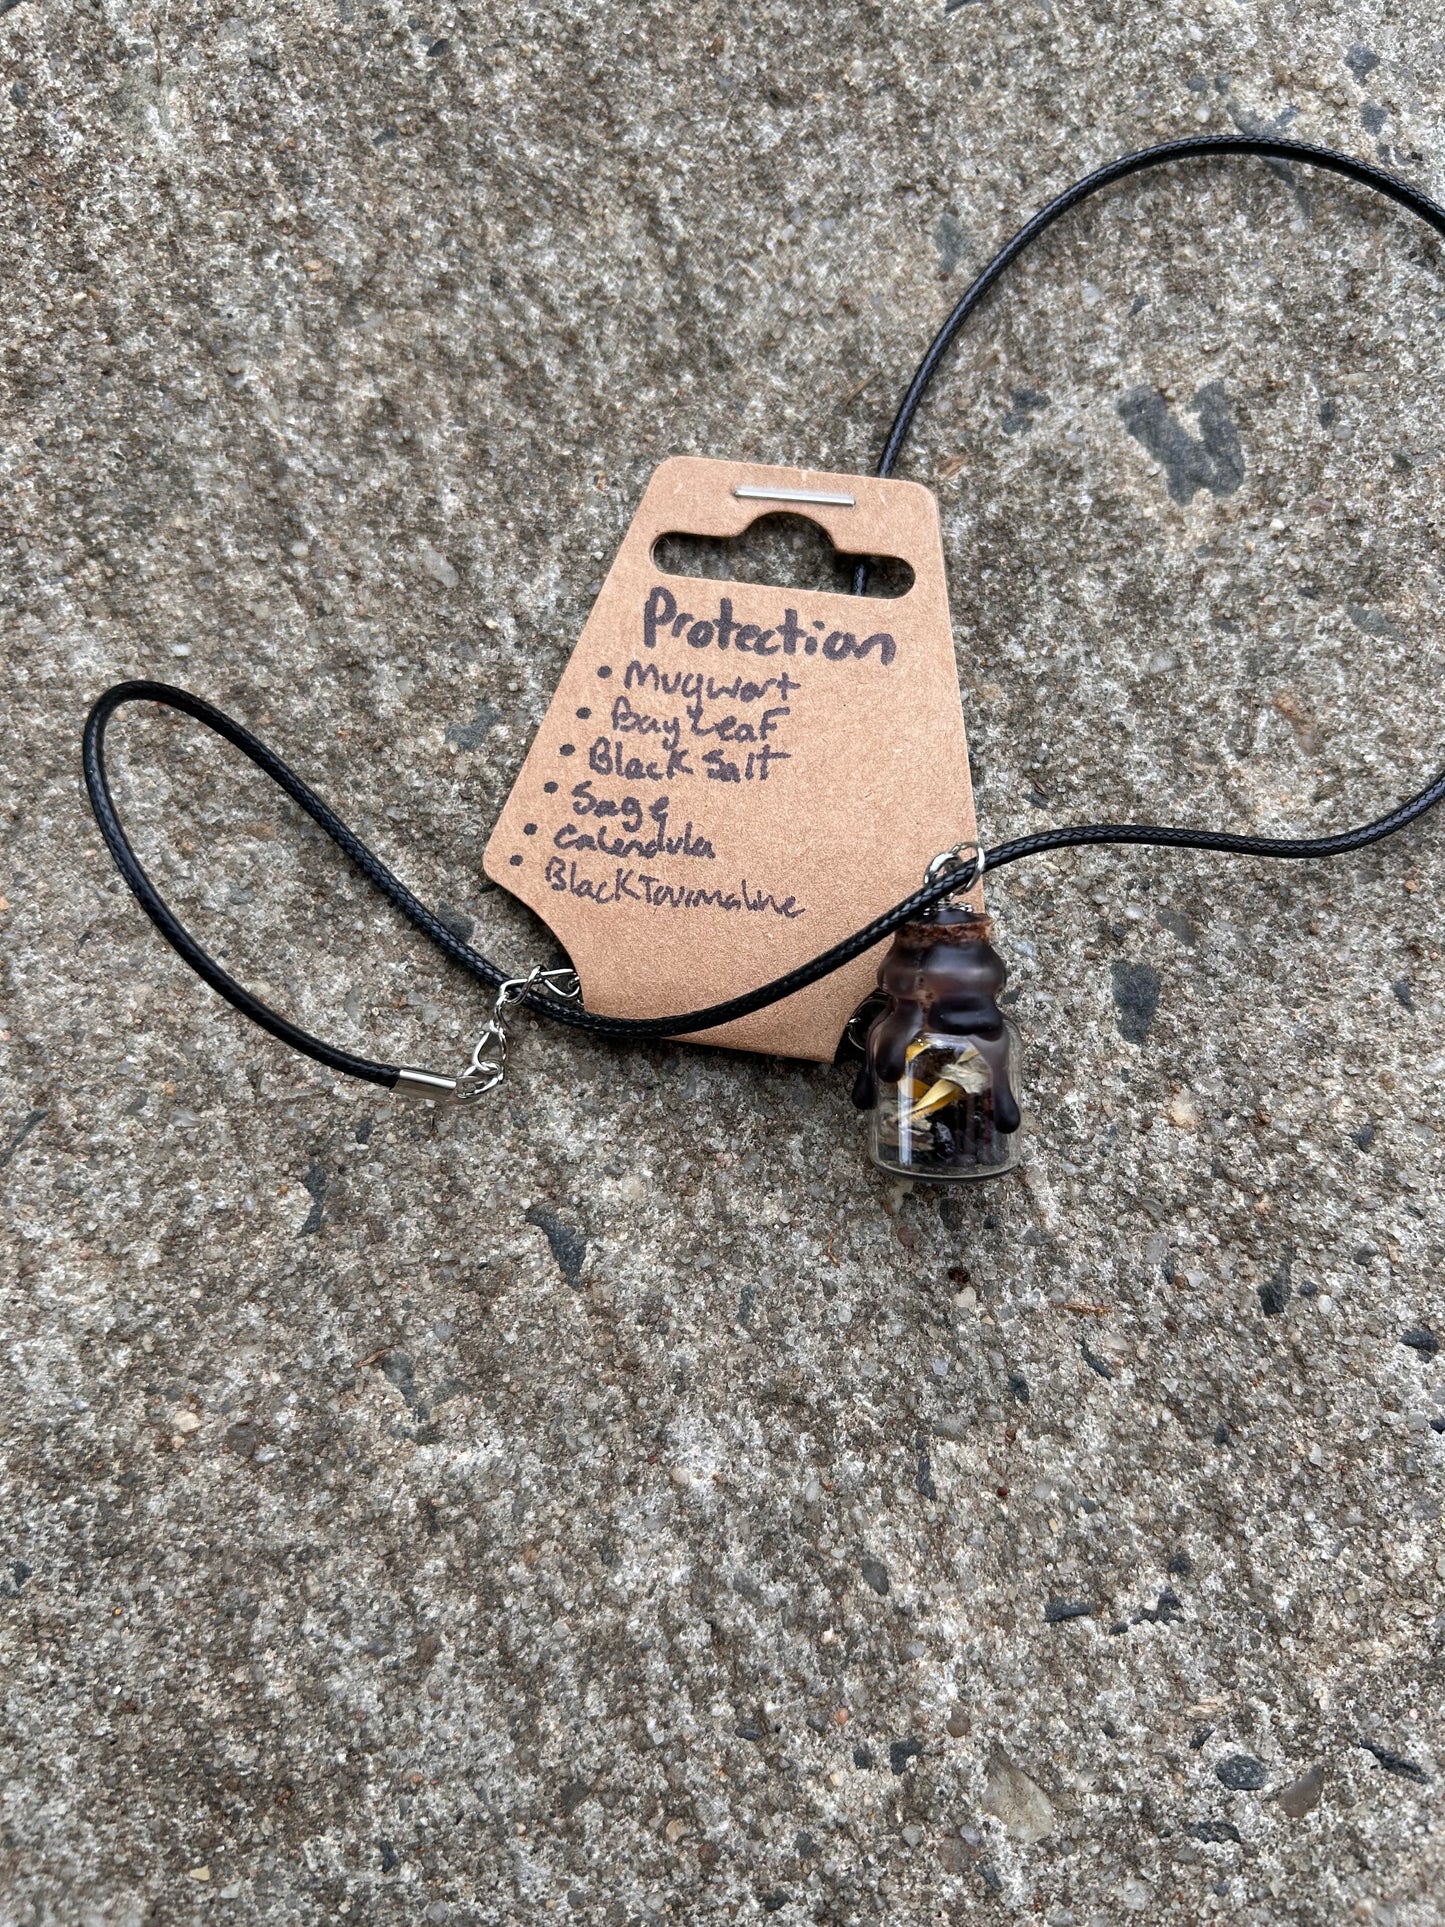 Protection
• Mugwort
• Bay Leaf
• Black Salt
• Sage
• Calendula
• Black Tourmaline